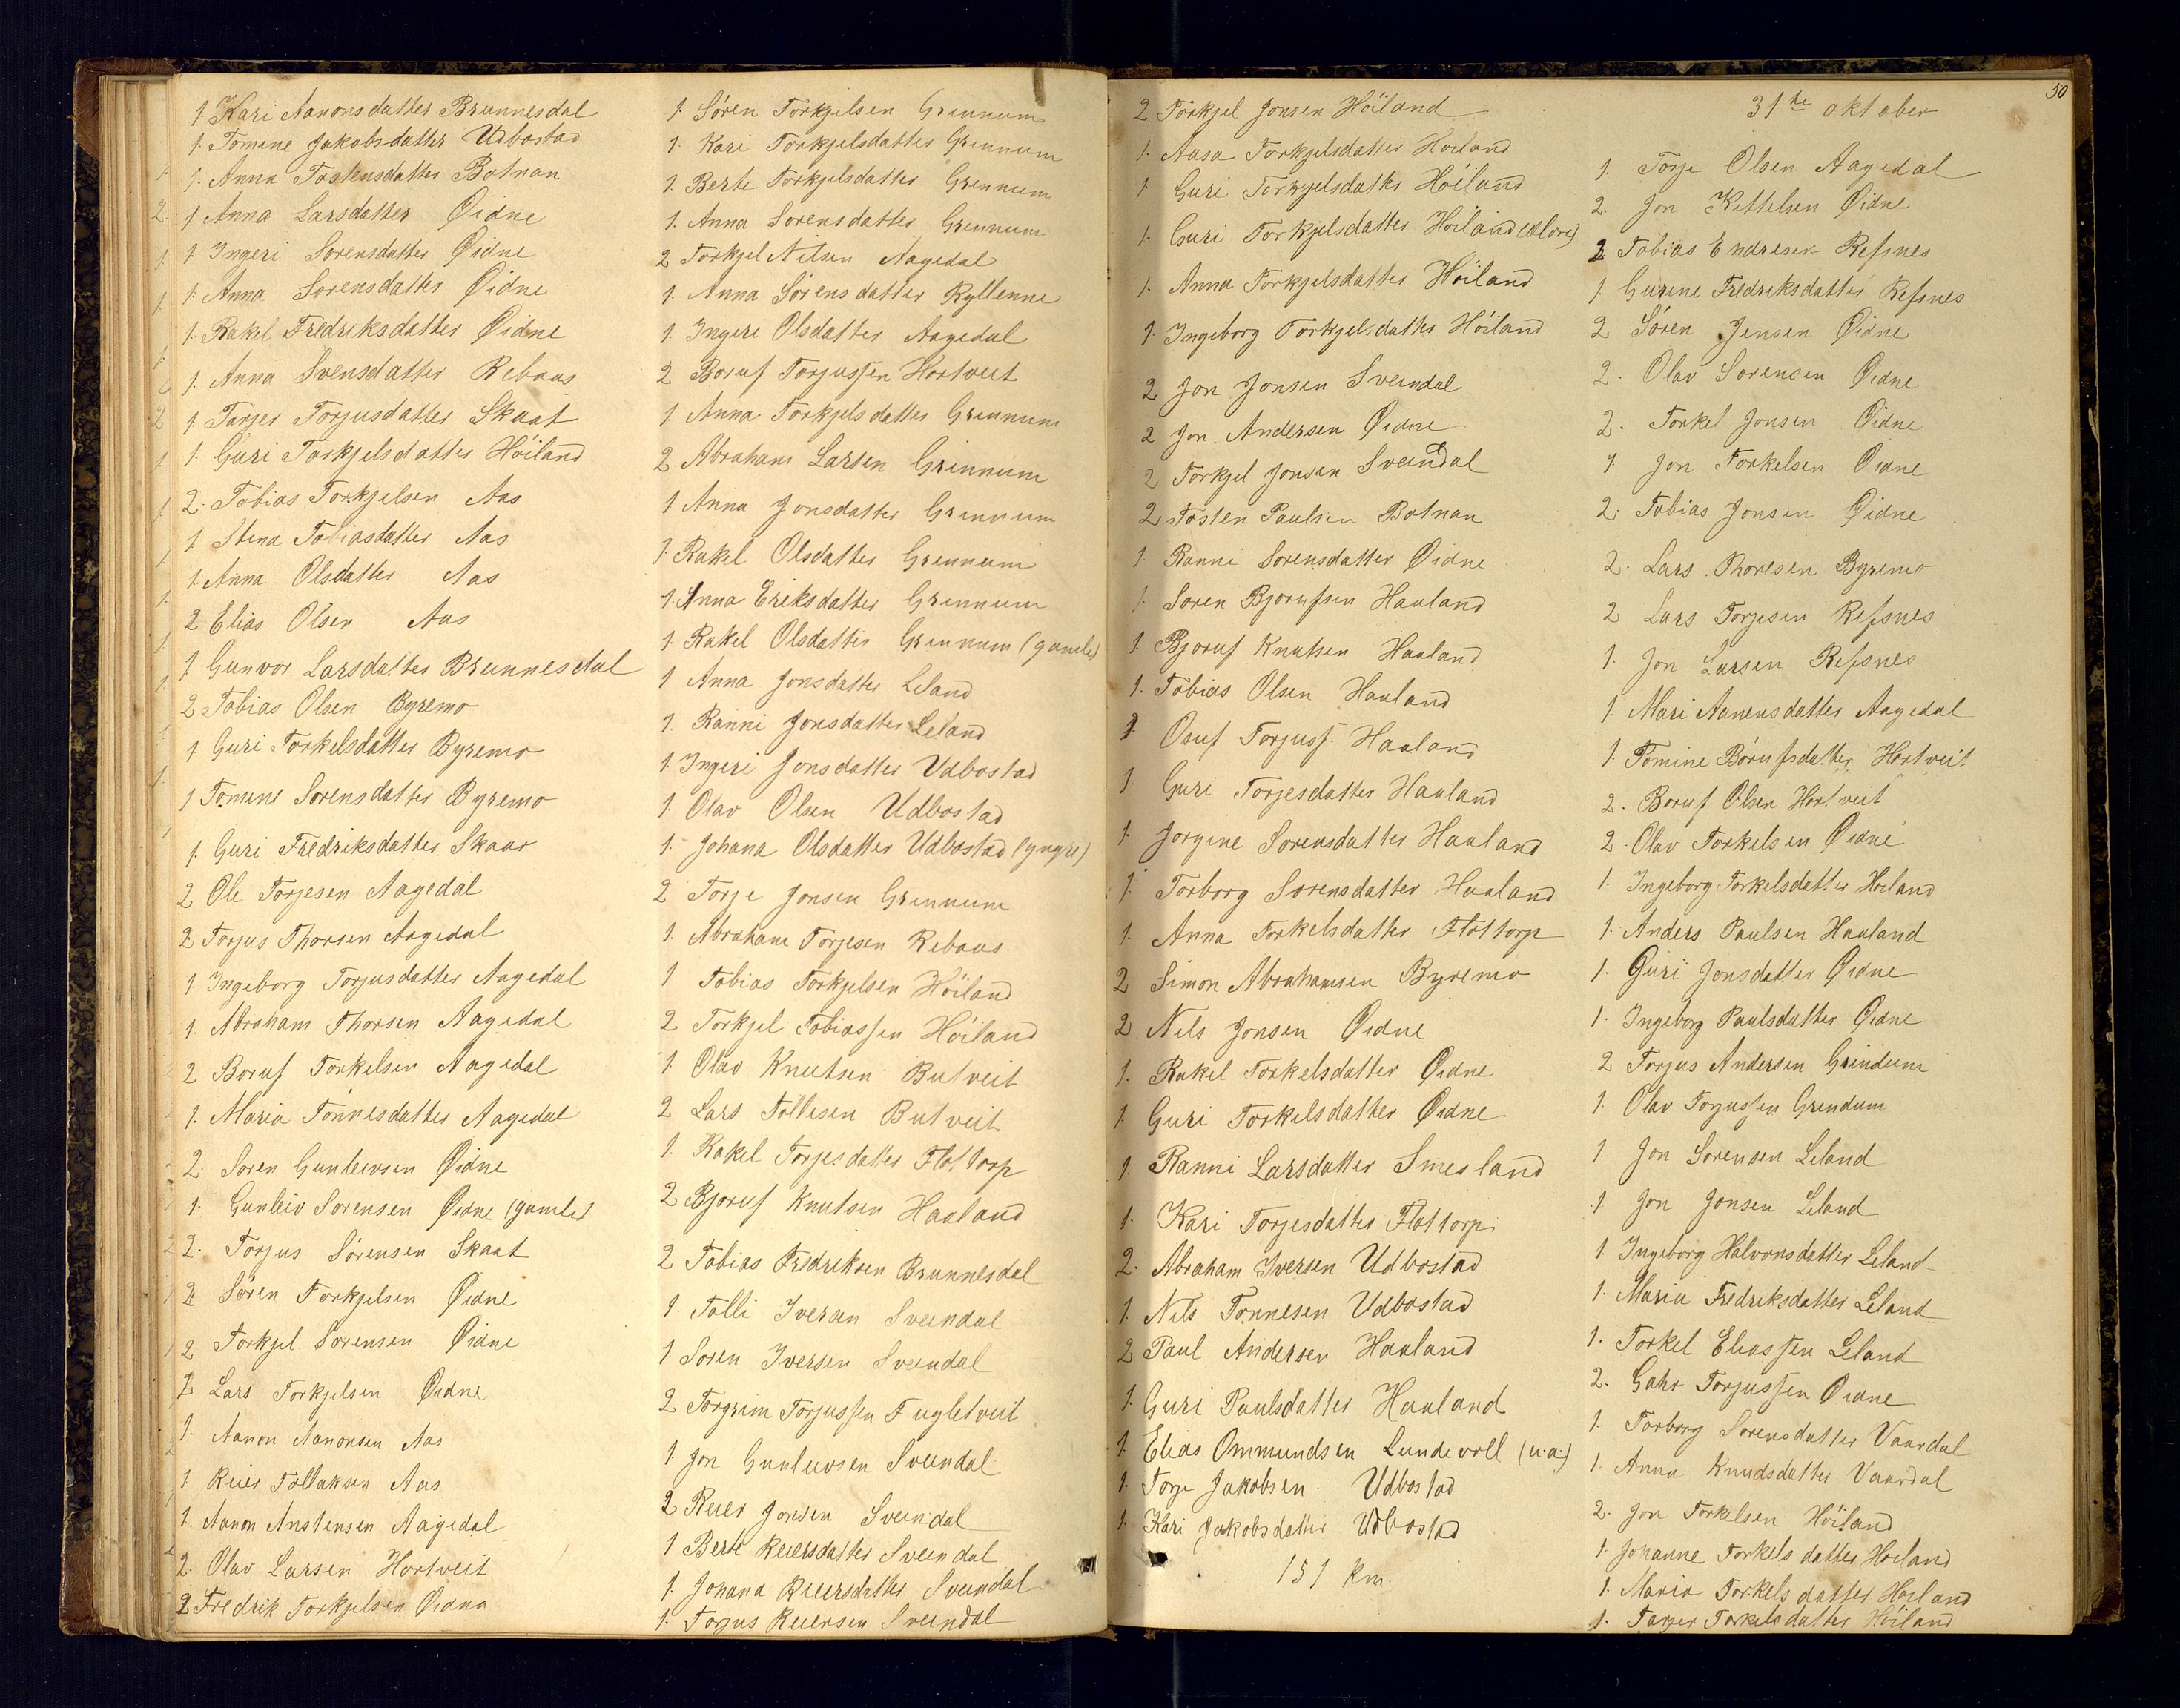 1. Kari Aanonsdatter Brunnesdal
1. Tomine Jakobsdatter Udbostad
1. Anna Tostensdatter Botnan
1 Anna Larsdatter Øidne
1 Ingeri Sorensdatter Øidne
1. Anna Sorensdatter Øidne
1. Rakel Fredriksdatter Øidne
1. Anna Svensdatter Rebaas
1. Tarjer Torjusdatter Skaat
1. Guri Torkjelsdatter Höiland
2. Tobias Torkjelsen Aas
1 Stena Tobiasdatter Aas
1. Anna Olsdatter Aas
2 Elias Olsen Aas
1 Gunvor Larsdatter Brunnesdal
2 Tobias Olsen Byremo
1 Guri Torkelsdatter Byremo
1 Tomine Sorensdatter Byremo
1. Guri Fredriksdatter Skaar
2 Ole Torjesen Aagedal
2 Torjus Thorsen Aagedal
1 Ingeborg Torjusdatter Aagedal
1. Abraham Thorsen Aagedal
2 Boruf Torkelsen Aagedal
1. Maria Tönnesdatter Aagedal
2. Soren Gunleivsen Øidne
1. Gunleiv Sorensen Øidne (gamle)
2. Torjus Sörensen Skaat
2 Sören Torkjelsen Øidne
2 Torkjel Sorensen Øidne
2 Lars Torkjelsen Øidne
1. Aanon Aanonsen Aas
1 Reier Tollaksen Aas
1. Aanon Anstensen Aagedal
2. Olav Larsen Hortveit
2 Fredrik Torkjelsen Øidna
1. Sören Torkjelsen Grennum
1. Kari Torkjelsdatter Grennum
1. Berte Torkjelsdatter Grennum
1. Anna Sorensdatter Grennum
2 Torkjel Nilsen Aagedal
1. Anna Sörensdatter Kyllenne
1. Ingeri Olsdatter Aagedal
2 Boruf Torjussen Hortveit
1 Anna Torkjelsdatter Grennum
2. Abraham Larsen Grinnum
1 Anna Jonsdatter Grennum
1. Rakel Olsdatter Grennum
1. Anna Eriksdatter Grennum
1. Rakel Olsdatter Grennum (gamle)
1 Anna Jonsdatter Leland
1. Ranni Jonsdatter Leland
1. Ingeri Jonsdatter Udbostad
1. Olav Olsen Udbostad
1. Johana Olsdatter Udbostad (yngre)
2 Torje Jonsen Grennum
1. Abraham Torjesen Rebaas
1 Tobias Torkjelsen Höiland
2 Torkjel Tobiassen Höiland
1 Olav Knutsen Butveit
2 Lars Tollesen Butveit
1. Rakel Torjesdatter Flottorp
2 Bjoruf Knutsen Haaland
2 Tobias Fredriksen Brunnesdal
1. Tolli Iversen Sveindal
1 Soren Iversen Sveindal
2 Torgrim Torjussen Fugletveit
1. Jon Gunleivsen Sveindal
2 Reier Jonsen Sveindal
1 Berte Reiersdatter Sveindal
1. Johana Reiersdatter Sveindal
1. Torjus Reiersen Sveindal
2 Torkjel Jonsen Höiland
1. Aasa Torkjelsdatter Hoiland
1 Guri Torkjelsdatter Höiland
1. Guri Torkjelsdatter Höiland (eldre)
1. Anna Torkjelsdatter Höiland
1 Ingeborg Torkjelsdatter Höiland
2 Jon Jonsen Sveindal
2 Jon Andersen Øidne
2 Torkjel Jonsen Sveindal
2 Tosten Paulsen Botnan
1. Ranni Sorensdatter Øidne
1. Soren Bjorufsen Haaland
1 Bjoruf Knutsen Haaland
1. Tobias Olsen Haaland
1 Osuf Torjuss. Haaland
1. Guri Torjesdatter Haaland
1. Jorgine Sorensdatter Haaland
1. Torborg Sorensdatter Haaland
1. Anna Torkelsdatter Flottorp
2 Simon Abrahamsen Byremo
2 Nils Jonsen Øidne
1. Rakel Torkelsdatter Øidne
1 Guri Torkelsdatter Øidne
1. Ranni Larsdatter Smesland
1. Kari Torjesdatter Flottorp
2. Abraham Iversen Udbostad
1. Nils Tonnesen Udbostad
2 Paul Andersen Haaland
1. Guri Paulsdatter Haaland
1. Elias Ommundsen Lundevoll (u.a.)
1. Torje Jakobsen Udbostad
1. Kari Jakobsdatter Udbostad
151 Km.
50
31te oktober
1. Torje Olsen Aagedal
2. Jon Kittelsen Øidne
2 Tobias Endresen Refsnes
1 Gurine Fredriksdatter Refsnes
2 Sören Jensen Øidne
2. Olav Sorensen Øidne
2. Torkel Jonsen Øidne
1 Jon Torkelsen Øidne
2. Tobias Jonsen Øidne
2. Lars Thoresen Byremo
2 Lars Torjesen Refsnes
1. Jon Larsen Refsnes
1. Mari Aanensdatter Aagedal
1. Tomine Börufsdatter Hortveit
2. Boruf Olsen Hortveit
2. Olav Torkelsen Øidne
1. Ingeborg Torkelsdatter Hoiland
1. Anders Paulsen Haaland
1. Guri Jonsdatter Øidne
1. Ingeborg Paulsdatter Øidne
2 Torjus Andersen Grindum
1. Olav Torjussen Grendum
1. Jon Sorensen Leland
1 Jon Jonsen Leland
1. Ingeborg Halvorsdatter Leland
1. Maria Fredriksdatter Leland
1. Torkel Eliassen Leland
2. Gahr Torjussen Øidne
1. Torborg Sorensdatter Vaardal
1. Anna Knudsdatter Vaardal
2. Jon Torkelsen Höiland
1. Johanne Torkelsdatter Hoiland
1. Maria Torkelsdatter Hoiland
1. Tarjer Torkelsdatter Höiland